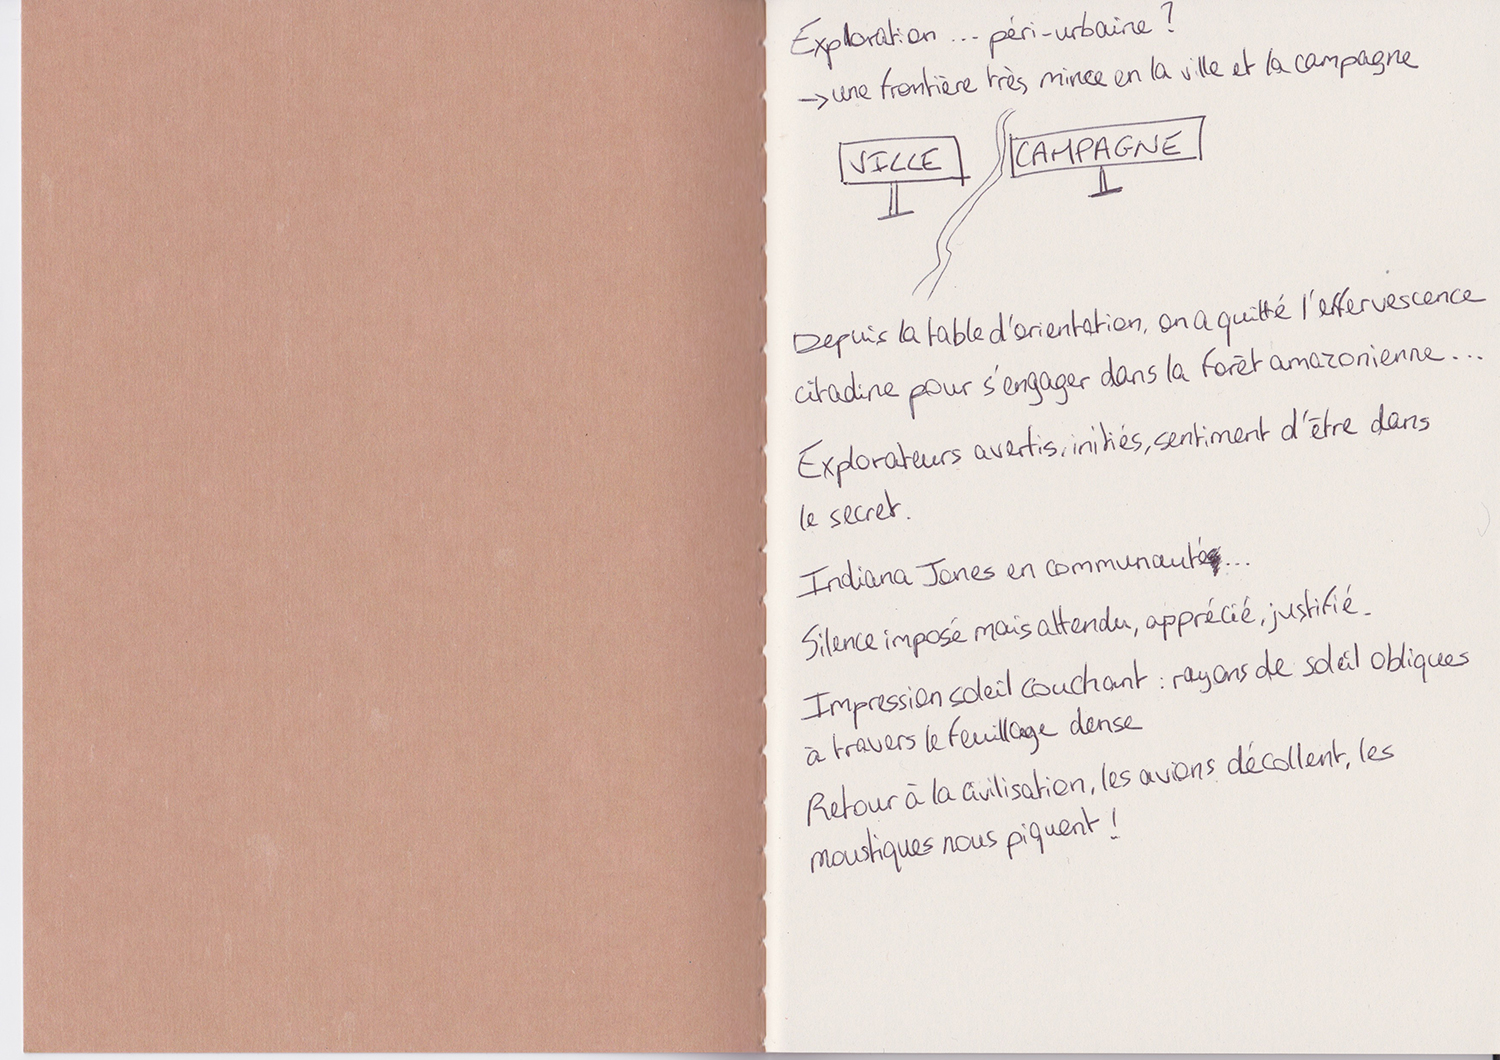 Exploration ... péri-urbaine ?
→ une frontière très mince en la ville et la campagne
VILLE CAMPAGNE
Depuis la table d'orientation, on a quitté l'effervescence
citadine pour s'engager dans la forêt amazonienne...
Explorateurs avertis, initiés, sentiment d'être dans
le secret.
Indiana Jones en communauté...
Silence imposé mais attendu, apprécié, justifié.
Impression soleil couchant : rayons de soleil obliques
à travers le feuillage dense
Retour à la civilisation, les avions décollent, les
moustiques nous piquent !